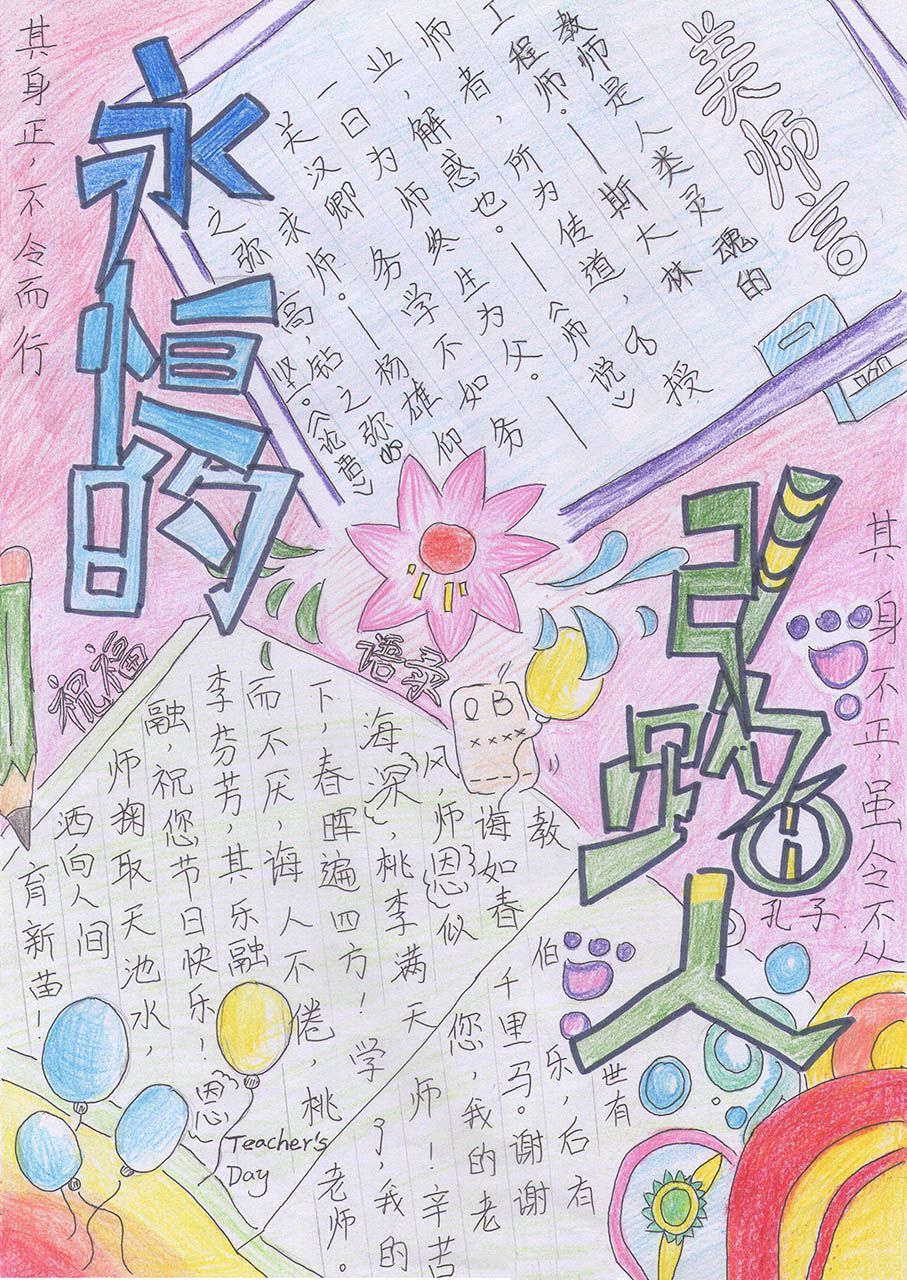 其身正，不令而行
永恒的
引路人
美师言
教师是人类灵魂的
工程师。——斯大林
师者，所为传道，授
业，解惑也。——《师说》
一日为师终生为父。
关汉卿 务学不如务
求师。——杨雄 仰
之弥高，钻之弥
坚。《论语》
其身不正，虽令不从
孔子
祝福
语录
QB
××××
教
诲如春
风，师恩似
海深，桃李满天
下，春晖遍四方！学
而不厌，诲人不倦，桃
李芬芳，其乐融
融，祝您节日快乐！
师掬取天池水，
洒向人间
育新苗！
世有
伯乐，后有
千里马。谢谢
您，我的老
师！辛苦
了，我的
老师。
恩
Teacher's
Day